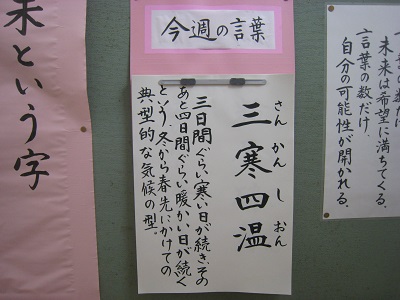 今週の言葉
さんかんしおん
三寒四温
三日間ぐらい寒い日が続き、その
あと四日間ぐらい暖かい日が続く
という、冬から春先にかけての
典型的な気候の型。
言葉の数だけ、
未来は希望に満ちてくる。
言葉の数だけ、
自分の可能性が開かれる。
という字